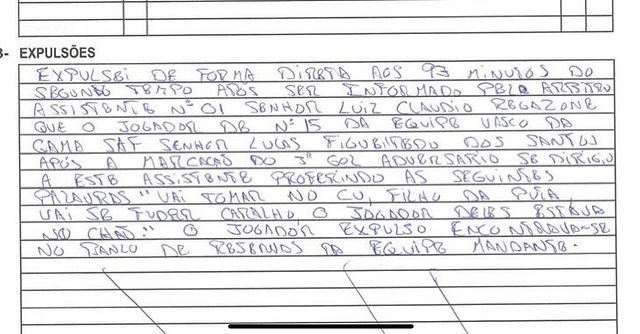 3- EXPULSÕES
EXPULSEI DE FORMA DIRETA AOS 93 MINUTOS DO
SEGUNDO TEMPO APÓS SER INFORMADO PELO ARBITRO
ASSISTENTE Nº 01 SENHOR LUIZ CLAUDIO REGAZONE
QUE O JOGADOR DE Nº 15 DA EQUIPE VASCO DA
GAMA SAF SENHOR LUCAS FIGUEIREDO DOS SANTOS
APÓS A MARCAÇÃO DO 3º GOL ADVERSARIO SE DIRIGIU
A ESTE ASSISTENTE PROFERINDO AS SEGUINTES
PALAVRAS "VAI TOMAR NO CU, FILHO DA PUTA,
VAI SE FUDER CARALHO, O JOGADOR DELES ESTAVA
NO CHÃO." O JOGADOR EXPULSO ENCONTRAVA-SE
NO BANCO DE RESERVAS DA EQUIPE MANDANTE.